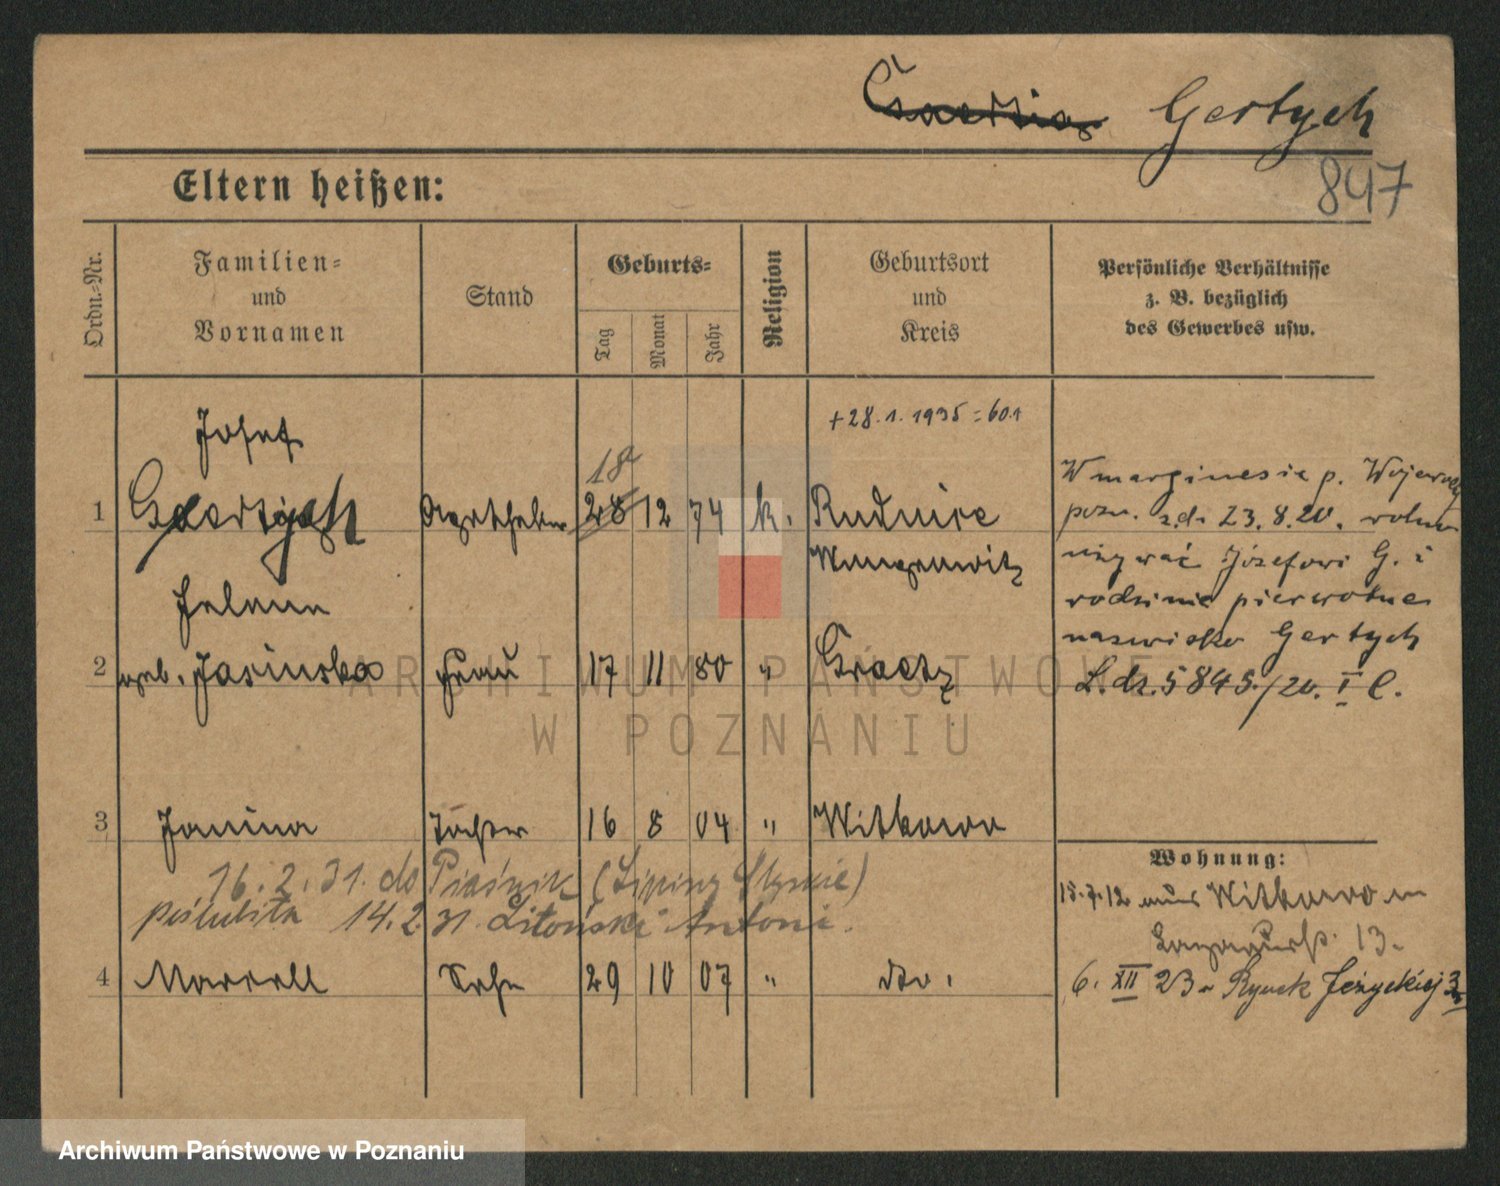 Gertych
847
Eltern heißen:
Ordn.=Nr.
Familien=
und
Vornamen
Stand
Geburts=
Tag
Monat
Jahr
Religion
Geburtsort
und
Kreis
Persönliche Verhältnisse
z. B. bezüglich
des Gewerbes usw.
+ 28. 1. 1935 = 60.1
Josef
18
1 Gertych Apotheker 28 12 74 k. Rudnice
Wongrowitz
Helena
2 geb. Jasinska Frau 17 11 80 " Graetz
W marginesie p. Wojewody
pozn. z d. 23. 8. 20. wolno
używać Józefowi G. i
rodzinie pierwotne
nazwisko Gertych
L. dz. 5845/20. I C.
3 Janina Tochter 16 8 04 " Witkowo
16. 2. 31. do Piaśnik (Lipiny Śląskie)
poślubiła 14. 2. 31 Antoni.
4 Marcell Sohn 29 10 07 " dto.
Wohnung:
15. 7. 12 aus Witkowo
13.
6. XII 23 Rynek Jeżyckiej 3
ARCHIWUM PAŃSTWOWE
W POZNANIU
Archiwum Państwowe w Poznaniu